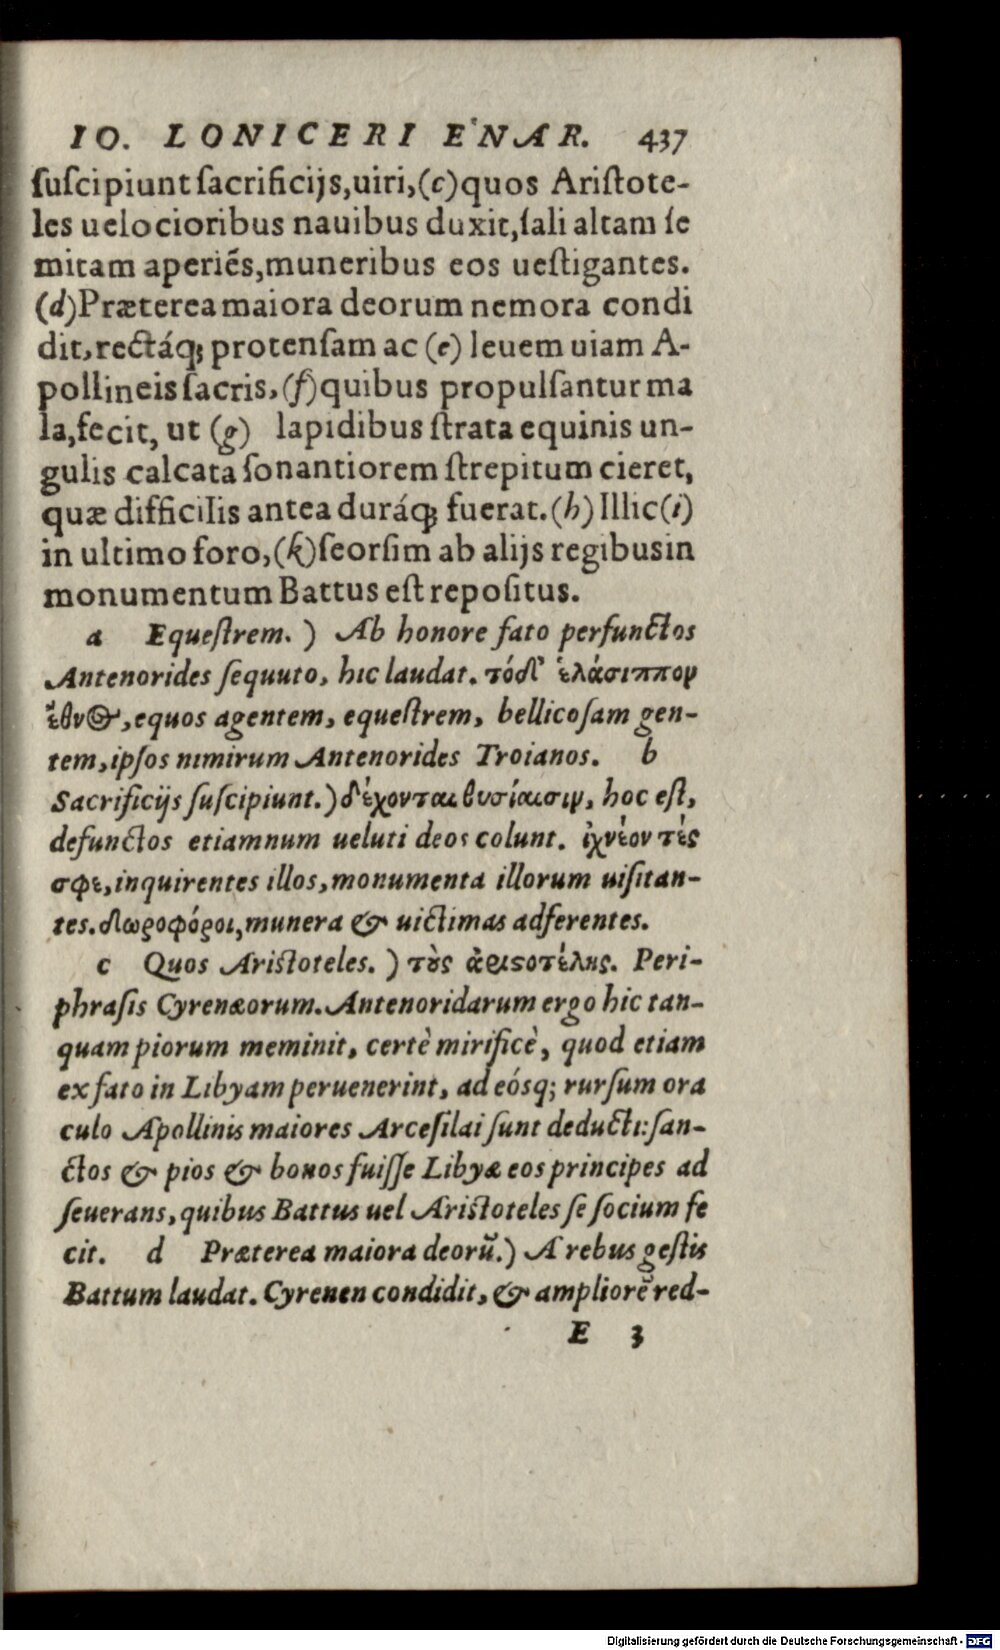 IO. LONICERI ENAR. 437
ſuſcipiunt ſacrificijs,uiri,(c)quos Ariſtote-
les uelocioribus nauibus duxit,ſali altam ſe
mitam aperiẽs,muneribus eos ueſtigantes.
(d)Præterea maiora deorum nemora condi
dit,rectáq; protenſam ac (e) leuem uiam A-
pollineis ſacris,(f)quibus propulſantur ma
la,fecit, ut (g) lapidibus ſtrata equinis un-
gulis calcata ſonantiorem ſtrepitum cieret,
quæ difficilis antea duráq; fuerat.(h) Illic(i)
in ultimo foro,(k)ſeorſim ab alijs regibus in
monumentum Battus eſt repoſitus.
a Equeſtrem. ) Ab honore fato perfunctos
Antenorides ſequuto, hic laudat. τόδ' ἐλάσιππον
ἔθνος, equos agentem, equeſtrem, bellicoſam gen-
tem,ipſos nimirum Antenorides Troianos. b
Sacrificijs ſuſcipiunt.) δέχονται θυσίαισιν, hoc eſt,
defunctos etiamnum ueluti deos colunt. ἰχνέοντὲς
σφε,inquirentes illos,monumenta illorum uiſitan-
tes. δωροφόροι, munera & uictimas adferentes.
c Quos Ariſtoteles. ) τοὺς ἀριστοτέλης. Peri-
phraſis Cyrenæorum. Antenoridarum ergo hic tan-
quam piorum meminit, certè mirificè, quod etiam
ex fato in Libyam peruenerint, ad eósq; rurſum ora
culo Apollinis maiores Arceſilai ſunt deducti:ſan-
ctos & pios & bonos fuiſſe Libyæ eos principes ad
ſeuerans, quibus Battus uel Ariſtoteles ſe ſocium fe
cit. d Præterea maiora deorũ.) A rebus geſtis
Battum laudat. Cyrenen condidit, & ampliorẽ red-
E 3
Digitalisierung gefördert durch die Deutsche Forschungsgemeinschaft - DFG